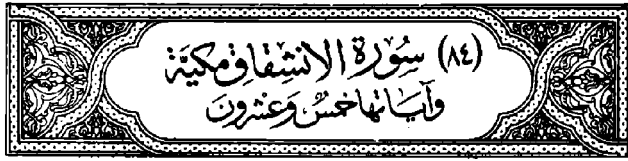 (٨٤) سُورَة الانشِقاق مَكيَّة
وَآيَاتهَا خَمسٌ وَعشرُونَ